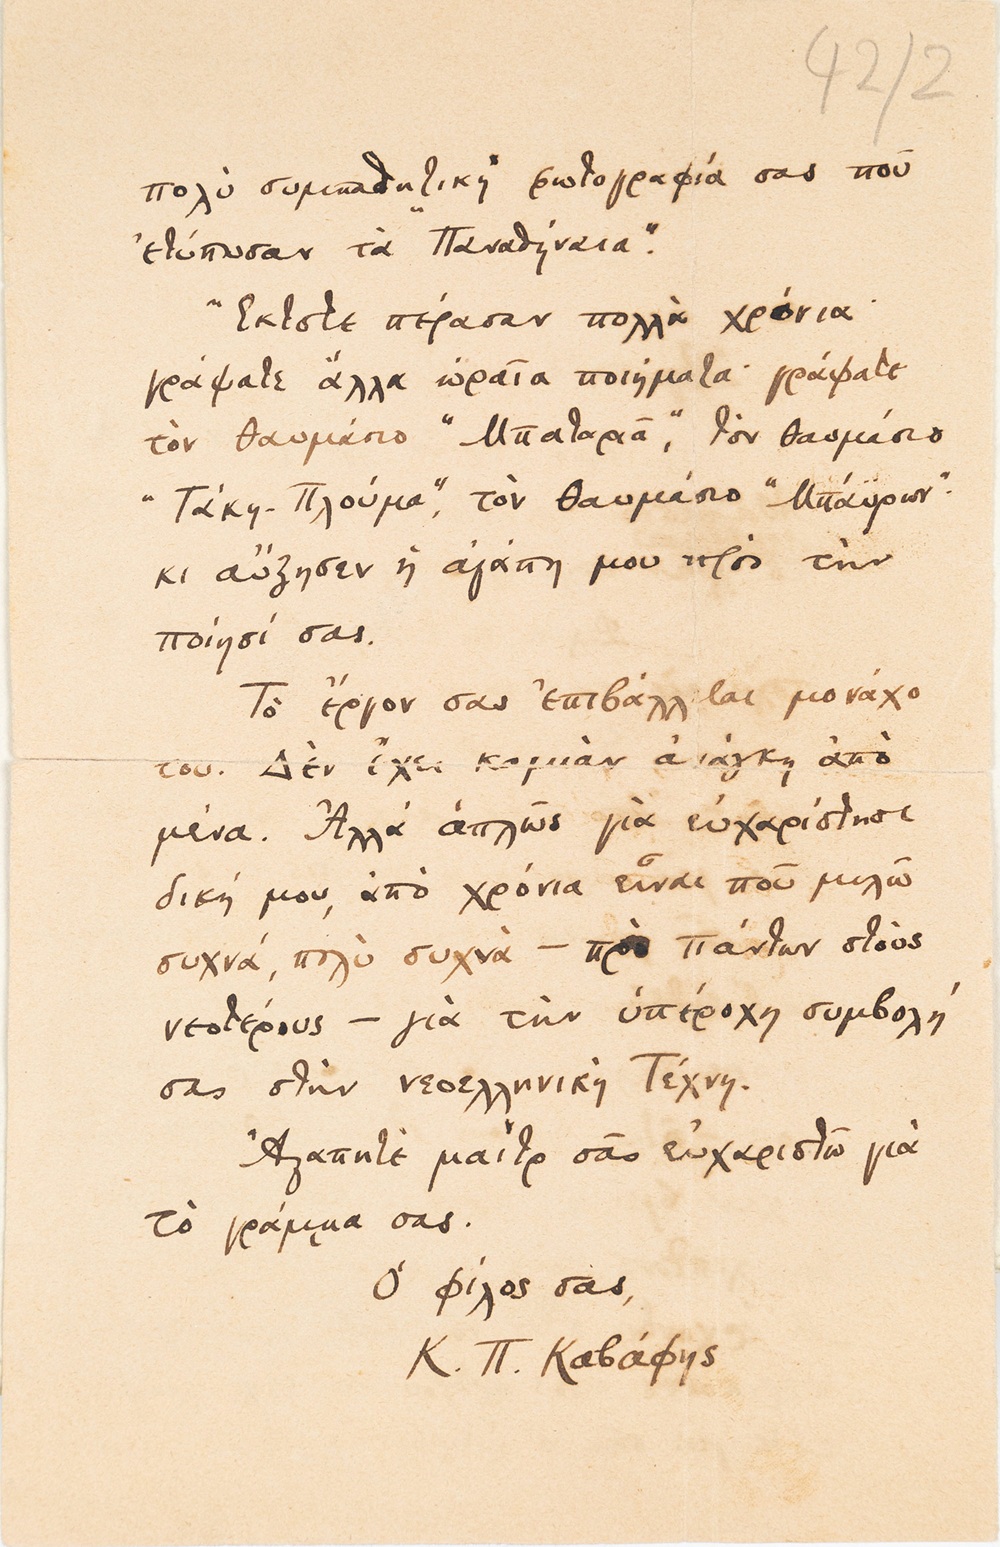 42/2
πολὺ συμπαθητικὴ φωτογραφία σας ποῦ
ἐτύπωσαν τὰ "Παναθήναια".
Ἔκτοτε πέρασαν πολλὰ χρόνια·
γράψατε ἄλλα ὡραῖα ποιήματα· γράψατε
τὸν θαυμάσιο "Μπαταριᾶ", τὸν θαυμάσιο
"Τάκη-Πλούμα", τὸν θαυμάσιο "Μπάϋρων".
κι αὔξησεν ἡ ἀγάπη μου πρὸς τὴν
ποίησί σας.
Τὸ ἔργον σας ἐπιβάλλεται μονάχο
του. Δὲν ἔχει καμιὰν ἀνάγκη ἀπὸ
μένα. Ἀλλὰ ἁπλῶς γιὰ εὐχαρίστησι
δική μου, ἀπὸ χρόνια εἶναι ποῦ μιλῶ
συχνά, πολὺ συχνὰ — πρὸ πάντων στοὺς
νεοτέρους — γιὰ τὴν ὑπέροχη συμβολή
σας στὴν νεοελληνικὴ Τέχνη.
Ἀγαπητὲ μαὶτρ σᾶς εὐχαριστῶ γιὰ
τὸ γράμμα σας.
Ὁ φίλος σας,
Κ. Π. Καβάφης